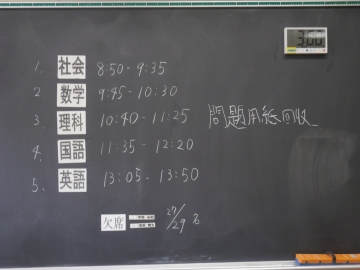 3:00
1. 社会 8:50 - 9:35
2 数学 9:45 - 10:30
3. 理科 10:40 - 11:25 問題用紙回収
4. 国語 11:35 - 12:20
5. 英語 13:05 - 13:50
欠席 27/29名